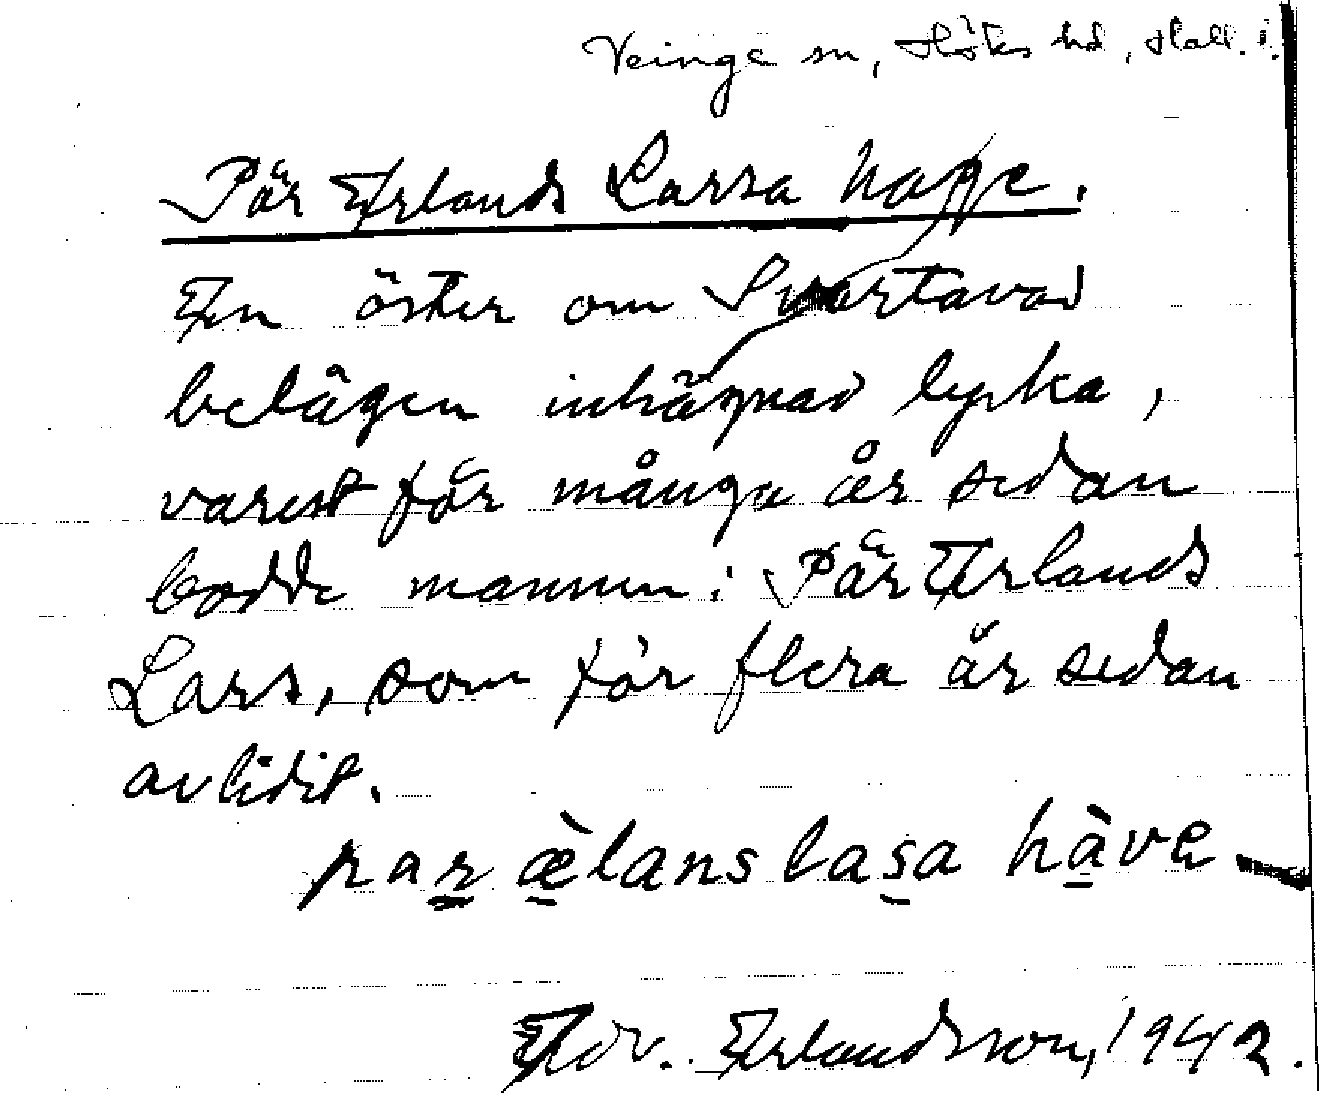 Veinge sn, Höks hd, Hall. i.
Pär Erlands Larsa hage.
En öster om Svartavad
belägen inhägnad lycka,
varest för många år sedan
bodde mannen: Pär Erlands
Lars, som för flera år sedan
avlidit.
par ælans lasa hàve
Edv. Erlandsson, 1942.